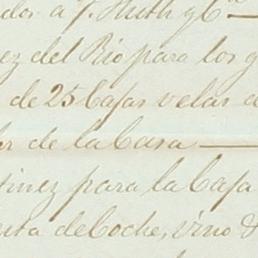 dos a F. Huth y Cª
ez del Rio para los g
de 25 Cajas velas d
or de la Casa
tinez para la Caja
nta de Coche, vino &